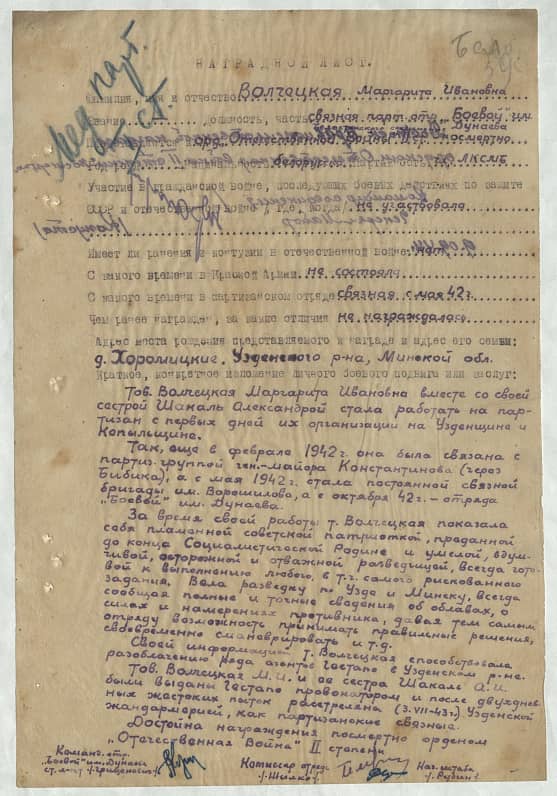 НАГРАДНОЙ ЛИСТ.
Фамилия, имя и отчество Волчецкая Маргарита Ивановна
должность, часть связная парт. отр. „Боевой" им. Дунаева
орд. Отечественной Войны посмертно
белоруска ЛКСМБ
Участие в гражданской войне, последующих боевых действиях по защите
СССР и отечественной войне /где, когда/ не участвовала
Имеет ли ранения и контузии в отечественной войне нет
С какого времени в Красной Армии не состояла
С какого времени в партизанском отряде связная с мая 42 г.
Чем ранее награжден, за какие отличия не награждалась
Адрес места рождения представляемого к награде и адрес его семьи:
д. Хоромицкие, Узденского р-на, Минской обл.
Краткое, конкретное изложение личного боевого подвига или заслуг:
Тов. Волчецкая Маргарита Ивановна вместе со своей
сестрой Шакаль Александрой стала работать на пар-
тизан с первых дней их организации на Узденщине и
Копыльщине.
Так, еще в феврале 1942 г. она была связана с
партиз. группой ген.-майора Константинова (через
Бибика), а с мая 1942 г. стала постоянной связной
бригады им. Ворошилова, а с октября 42 г. – отряда
„Боевой" им. Дунаева.
За время своей работы т. Волчецкая показала
себя пламенной советской патриоткой, преданной
до конца Социалистической Родине и умелой, вдум-
чивой, осторожной и отважной разведчицей, всегда гото-
вой к выполнению любого, в т.ч. самого рискованного
задания. Вела разведку по Узде и Минску, всегда
сообщая полные и точные сведения об облавах, о
силах и намерениях противника, давая тем самым
отряду возможность принимать правильные решения,
своевременно сманеврировать и т.д.
Своей информацией т. Волчецкая способствовала
разоблачению ряда агентов Гестапо в Узденском р-не.
Тов. Волчецкая М.И. и ее сестра Шакаль А.И.
были выданы Гестапо провокатором и после двухднев-
ных жестоких пыток расстреляна (3.VII-43 г.) Узденской
жандармерией, как партизанские связные.
Достойна награждения посмертно орденом
„Отечественная Война" II степени
Команд. отр. „Боевой" им. Дунаева ст. лейт.
Комиссар отряда
Нач. штаба